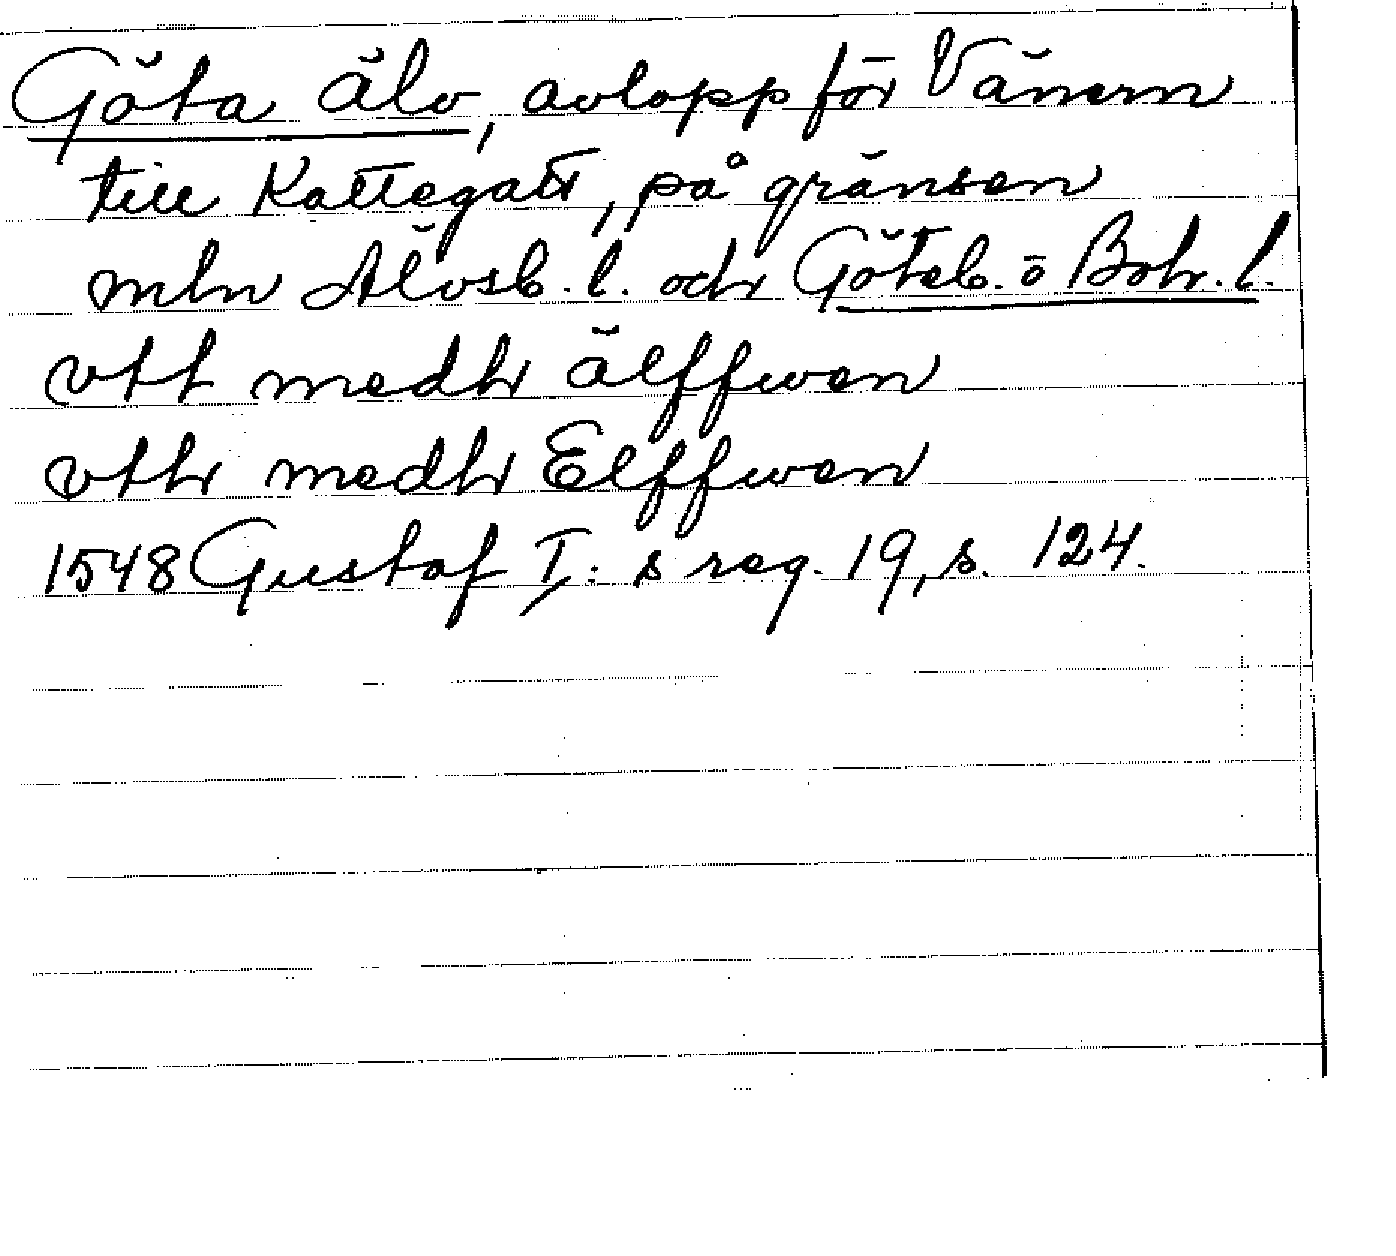 Göta älv, avlopp för Vänern
till Kattegatt, på gränsen
mln Älvsb. l. och Göteb. o Boh. l.
vtt medh älffwen
vth medh Elffwen
1548 Gustaf I: s reg. 19, s. 124.